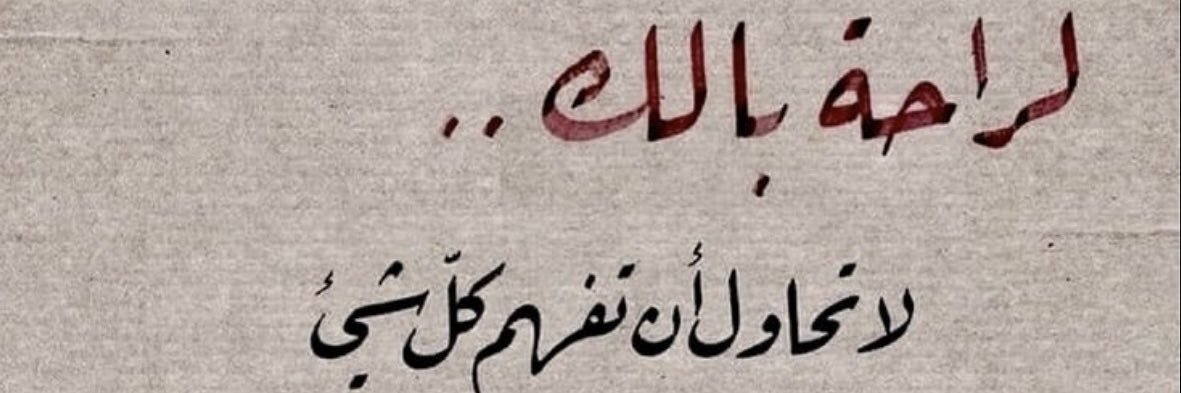 لراحة بالك ..
لا تحاول أن تفهم كلّ شيئ